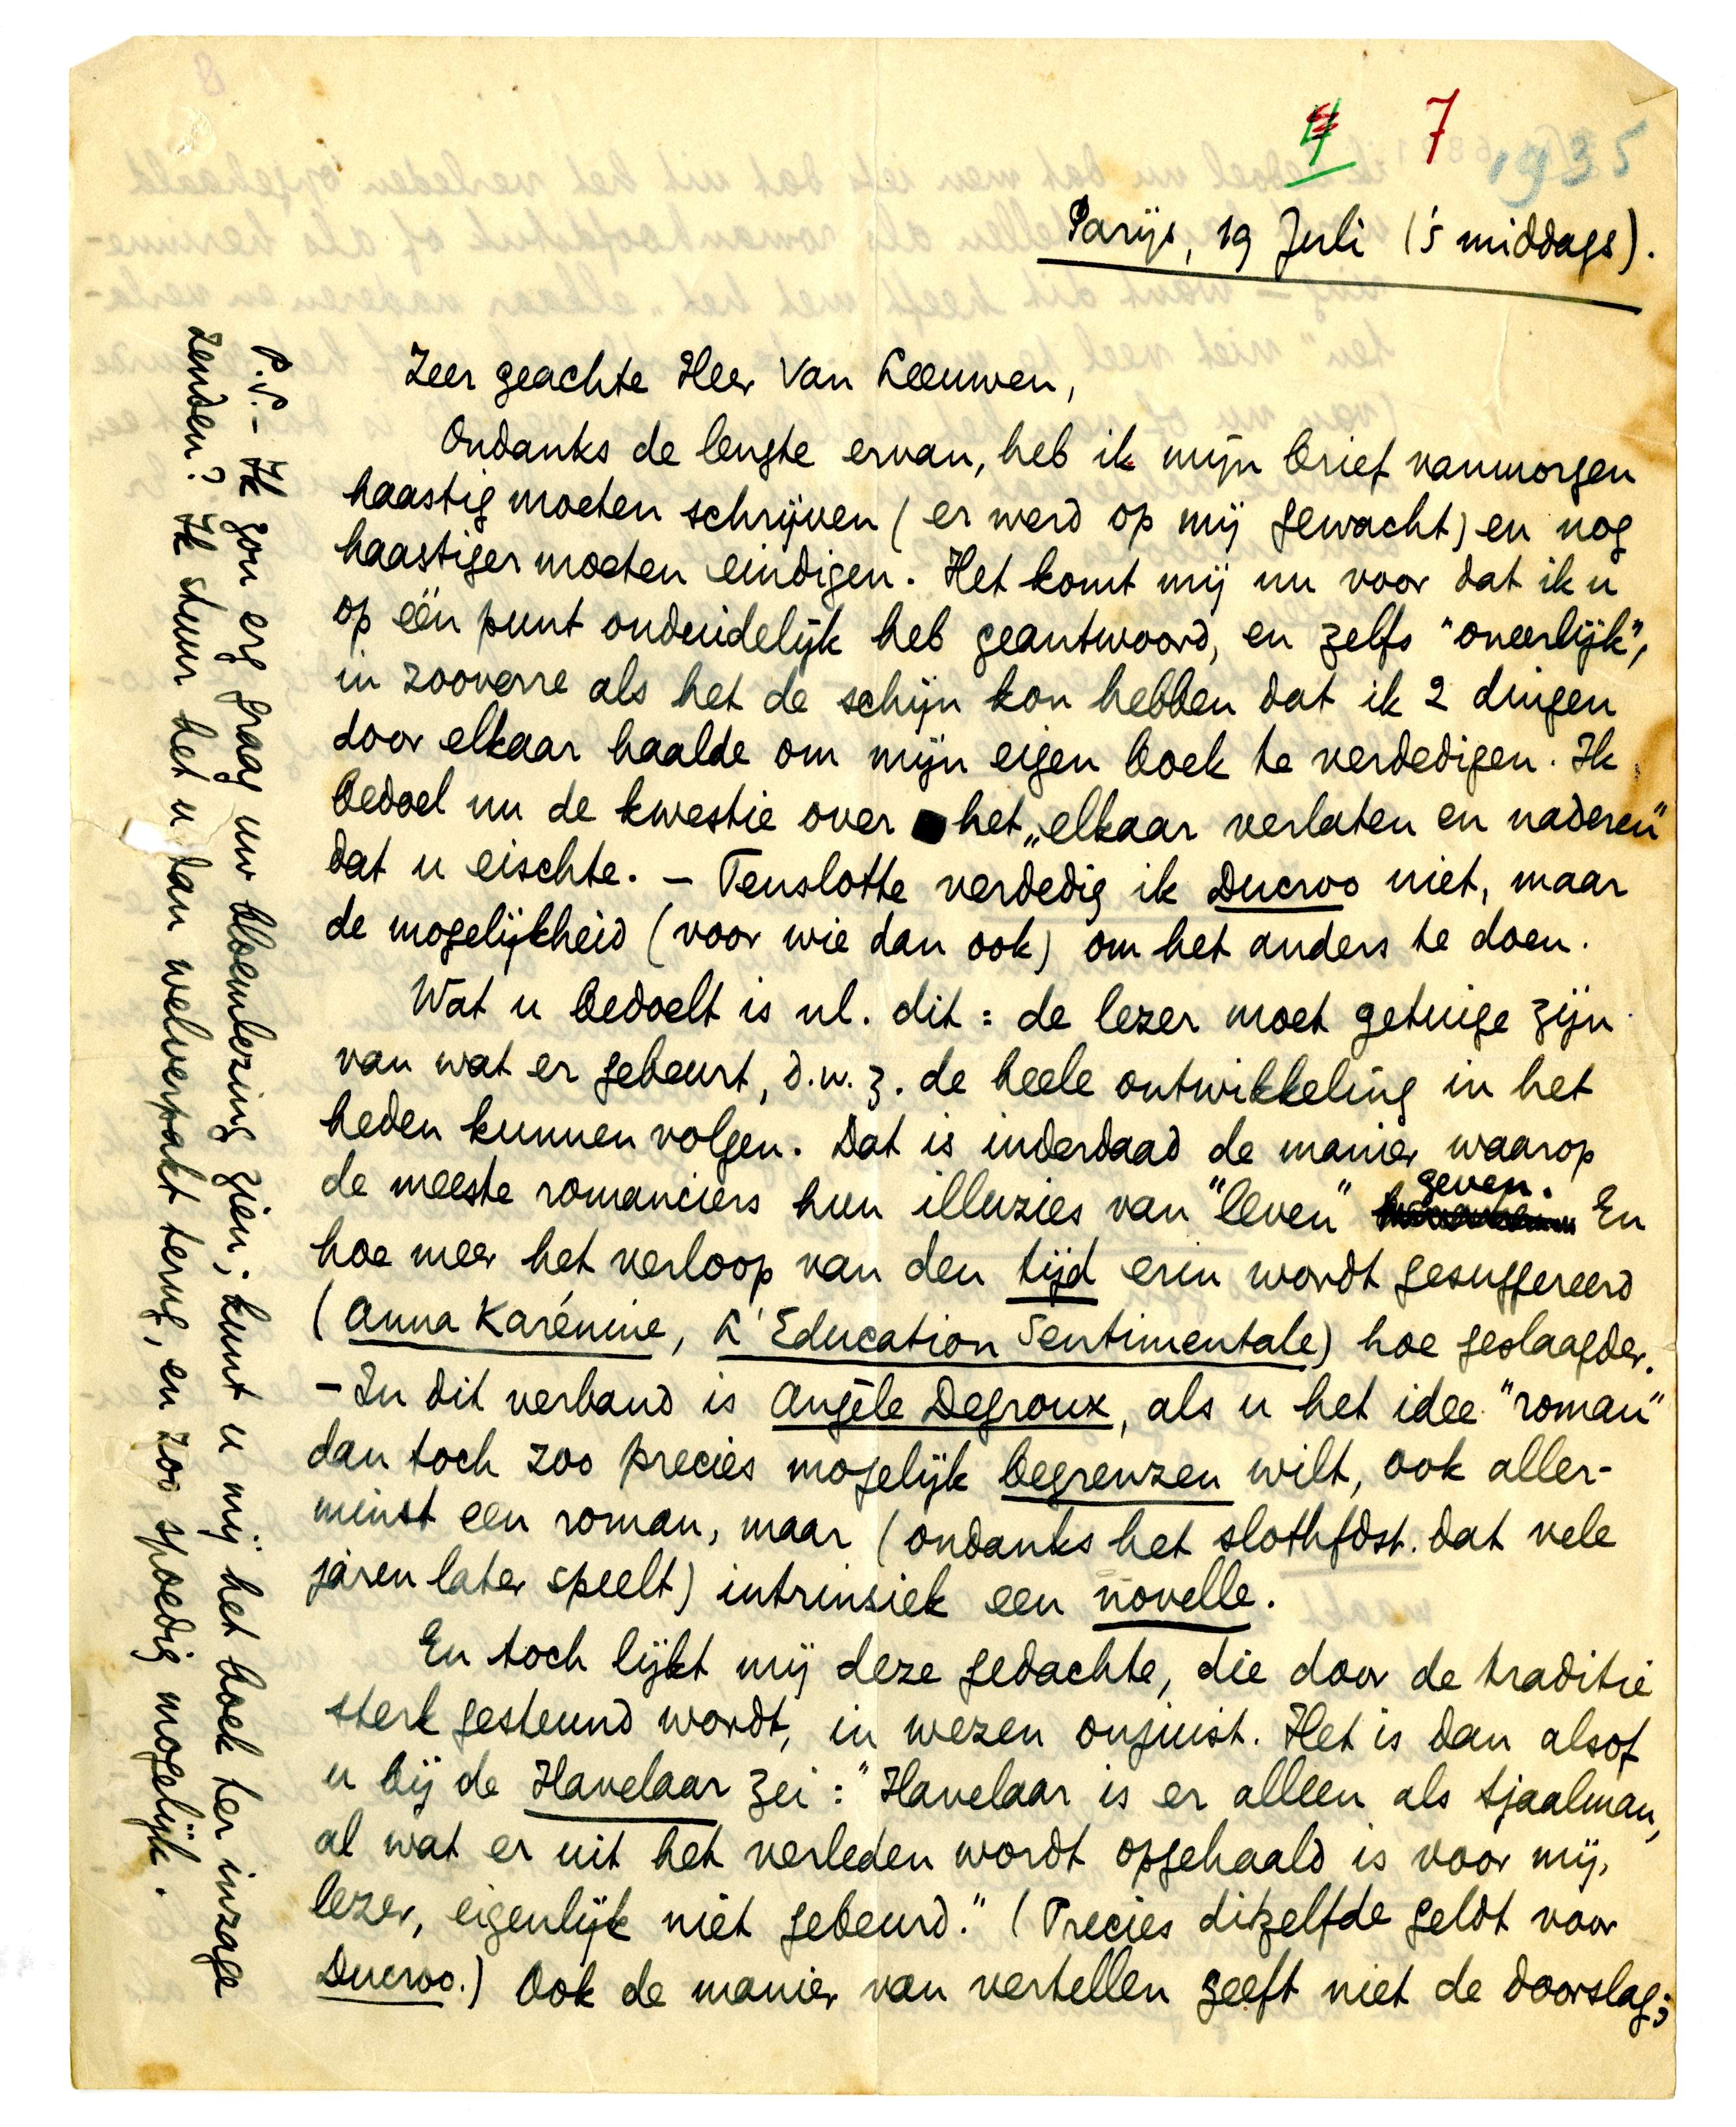 7
1935
Parijs, 19 Juli ('s middags).
Zeer geachte Heer Van Leeuwen,
Ondanks de lengte ervan, heb ik mijn brief vanmorgen
haastig moeten schrijven (er werd op mij gewacht) en nog
haastiger moeten eindigen. Het komt mij nu voor dat ik u
op één punt onduidelijk heb geantwoord, en zelfs "oneerlijk",
in zooverre als het de schijn kon hebben dat ik 2 dingen
door elkaar haalde om mijn eigen boek te verdedigen. Ik
bedoel nu de kwestie over het „elkaar verlaten en naderen"
dat u eischte. – Tenslotte verdedig ik Ducroo niet, maar
de mogelijkheid (voor wie dan ook) om het anders te doen.
Wat u bedoelt is nl. dit: de lezer moet getuige zijn
van wat er gebeurt, d.w.z. de heele ontwikkeling in het
heden kunnen volgen. Dat is inderdaad de manier waarop
de meeste romanciers hun illuzies van "leven" geven. En
hoe meer het verloop van den tijd erin wordt gesuggereerd
(Anna Karénine, L'Education Sentimentale) hoe geslaagder.
– In dit verband is Angèle Degroux, als u het idee "roman"
dan toch zoo precies mogelijk begrenzen wilt, ook aller-
minst een roman, maar (ondanks het slothfdst. dat vele
jaren later speelt) intrinsiek een novelle.
En toch lijkt mij deze gedachte, die door de traditie
sterk gesteund wordt, in wezen onjuist. Het is dan alsof
u bij de Havelaar zei: "Havelaar is er alleen als Sjaalman,
al wat er uit het verleden wordt opgehaald is voor mij,
lezer, eigenlijk niet gebeurd." (Precies ditzelfde geldt voor
Ducroo.) Ook de manier van vertellen geeft niet de doorslag;
P.S. – Ik zou erg graag uw bloemlezing zien; kunt u mij het boek ter inzage
zenden? Ik stuur het u dan welverpakt terug, en zoo spoedig mogelijk.